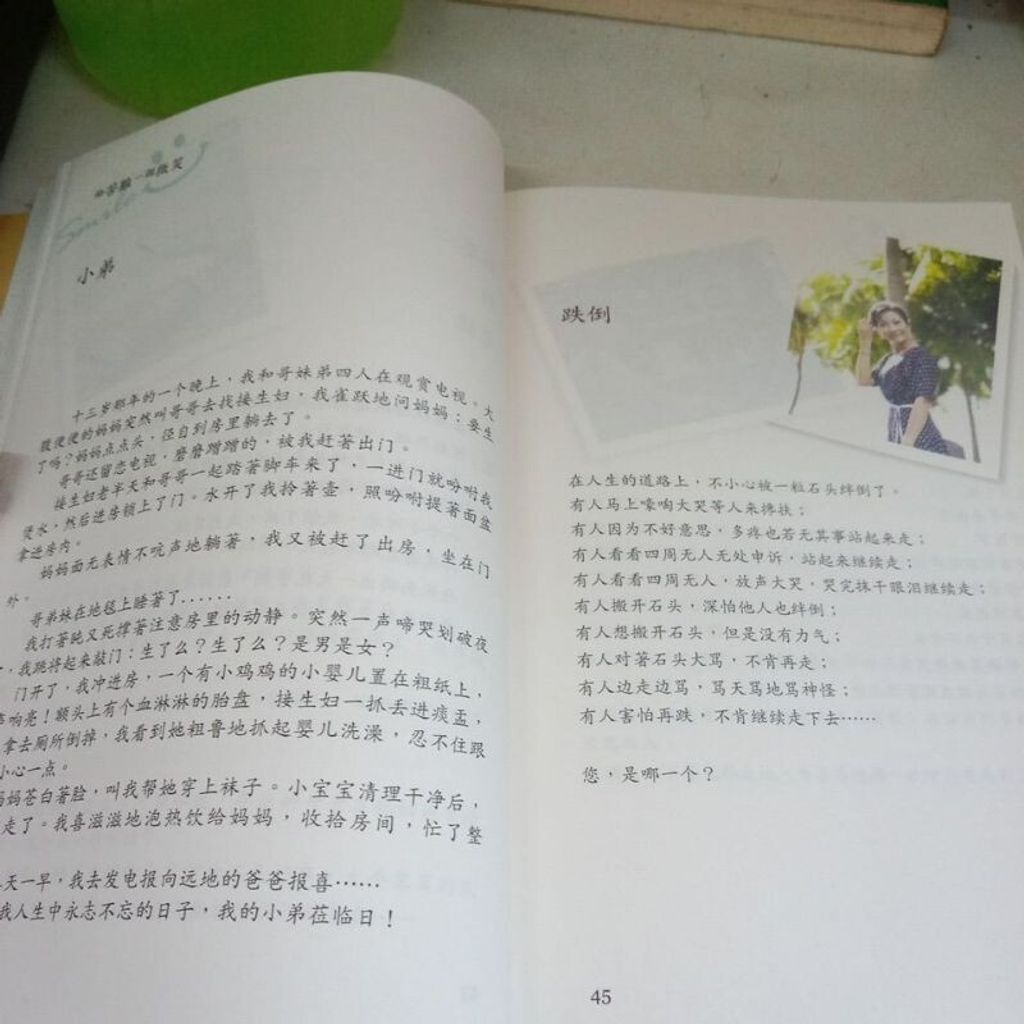 苦脸一张微笑
Smile
小弟
十三岁那年的一个晚上，我和哥妹弟四人在观赏电视。大
腹便便的妈妈突然叫哥哥去找接生妇，我雀跃地问妈妈：要生
了吗？妈妈点点头，径自到房里躺去了。
哥哥还留恋电视，磨磨蹭蹭的，被我赶著出门。
接生妇老半天和哥哥一起踏著脚车来了，一进门就吩咐我
煲水，然后进房锁上了门。水开了我拎著壶，照吩咐提著面盆
拿进房内。
妈妈面无表情不吭声地躺著，我又被赶了出房，坐在门
外。
哥弟妹在地毯上睡著了......
我打著盹又死撑著注意房里的动静。突然一声啼哭划破夜
，我跳将起来敲门：生了么？生了么？是男是女？
门开了，我冲进房，一个有小鸡鸡的小婴儿置在粗纸上，
响亮！额头上有个血淋淋的胎盘，接生妇一抓丢进痰盂，
拿去厕所倒掉，我看到她粗鲁地抓起婴儿洗澡，忍不住跟
小心一点。
妈苍白著脸，叫我帮她穿上袜子。小宝宝清理干净后，
走了。我喜滋滋地泡热饮给妈妈，收拾房间，忙了整
天一早，我去发电报向远地的爸爸报喜……
我人生中永志不忘的日子，我的小弟莅临日！
跌倒
在人生的道路上，不小心被一粒石头绊倒了。
有人马上嚎啕大哭等人来搀扶；
有人因为不好意思，多疼也若无其事站起来走；
有人看看四周无人无处申诉，站起来继续走；
有人看看四周无人，放声大哭，哭完抹干眼泪继续走；
有人搬开石头，深怕他人也绊倒；
有人想搬开石头，但是没有力气；
有人对著石头大骂，不肯再走；
有人边走边骂，骂天骂地骂神怪；
有人害怕再跌，不肯继续走下去……
您，是哪一个？
45